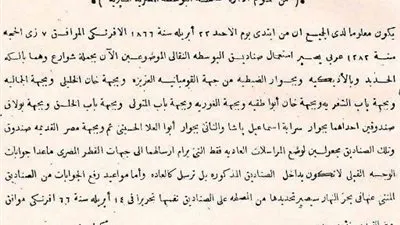 يكون معلوما لدى الجميع ان من ابتدى يوم الاحد ٢٢ أبريله سنة ١٨٦٦ الافرنكي الموافق ٧ زى الحجه
سنة ١٢٨٢ عربي يصير استعمال صناديق البوسطه النقالى الموضوعين الآن بجملة شوارع وهما بالسكه
الجديد وبالأزبكيه وبجوار الضبطيه من جهة القومبانيه العزيزه وبجهة خان الخليلى وبجهة الجماليه
وبجهة باب الشعريه وبجهة خان أبوا طقيه وبجهة الغوريه وبجهة باب المتولى وبجهة باب الخلق وبجهة بولاق
صندوقين احداهما بجوار سراية اسماعيل باشا والثانى بجوار أبوا العلا الحسينى ثم وبجهة مصر القديمه صندوق
وتلك الصناديق مجعولين لوضع المراسلات العاديه فقط التى يرام ارسالها الى جهات القطر المصرى ماعدا جوابات
الوجهه القبلى فلاتكون بداخل الصناديق المذكوره بل ترسل كالعاده وأما مواعيد رفع الجوابات من الصناديق
المنبى عنهما فى بحر النهار سيصير تحديدها من المصلحه على الصناديق نفسها تحريرا فى ١٤ أبريله سنة ٦٦ افرنكى موافق